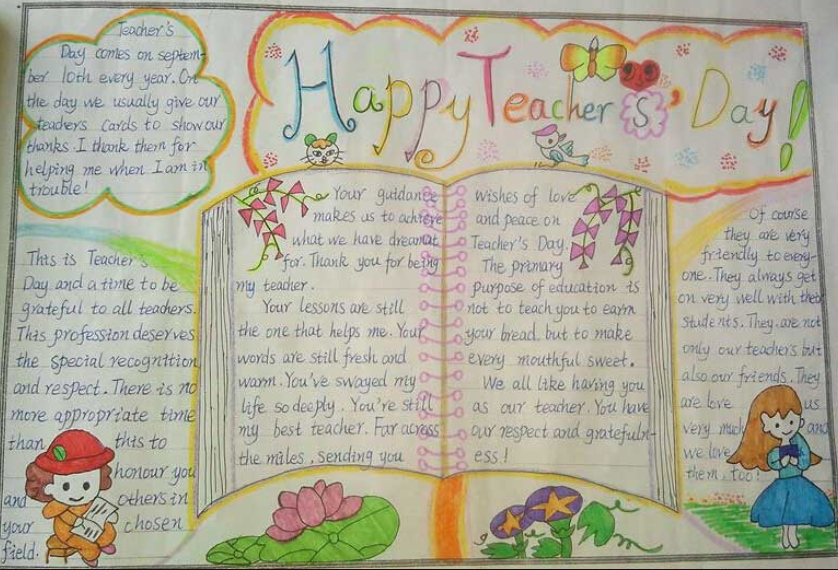 Happy Teacher's' Day!
Teacher's
Day comes on septem-
ber 10th every year. On
the day we usually give our
teachers cards to show our
thanks. I thank them for
helping me when I am in
trouble!
This is Teacher's
Day and a time to be
grateful to all teachers.
This profession deserves
the special recognition
and respect. There is no
more appropriate time
than this to
honour you
and others in
your chosen
field.
Your guidance
makes us to achieve
what we have dreamat
for. Thank you for being
my teacher.
Your lessons are still
the one that helps me. Your
words are still fresh and
warm. You've swayed my
life so deeply. You're still
my best teacher. Far across
the miles, sending you
wishes of love
and peace on
Teacher's Day.
The primary
purpose of education is
not to teach you to earn
your bread, but to make
every mouthful sweet.
We all like having you
as our teacher. You have
our respect and gratefuln-
ess!
Of course
they are very
friendly to every-
one. They always get
on very well with their
students. They are not
only our teachers but
also our friends. They
are love us
very much and
we love
them, too!